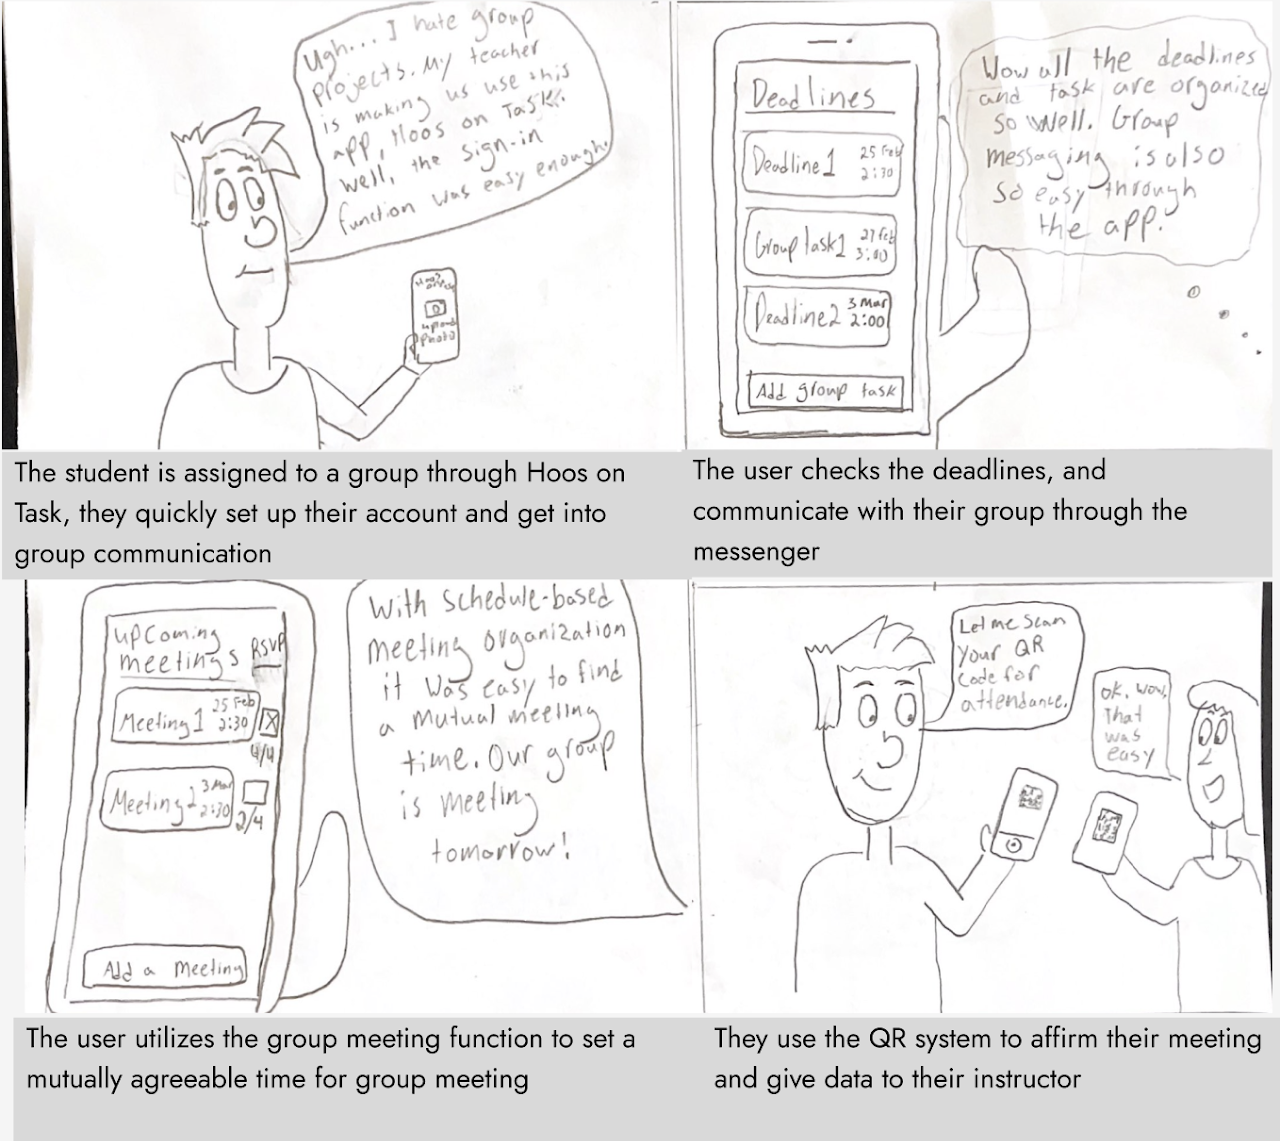 Ugh... I hate group
projects. My teacher
is making us use this
app, Hoos on Task.
well, the sign-in
function was easy enough.
upload
photo
The student is assigned to a group through Hoos on
Task, they quickly set up their account and get into
group communication
Deadlines
Deadline 1
25 Feb
2:30
Group task 1
27 Feb
3:00
Deadline 2
3 Mar
2:00
Add group task
Wow all the deadlines
and task are organized
so well. Group
messaging is also
so easy through
the app.
The user checks the deadlines, and
communicate with their group through the
messenger
upcoming
meetings
RSVP
Meeting 1
25 Feb
2:30
4/4
Meeting 2
3 Mar
2:30
2/4
Add a meeting
With schedule-based
meeting organization
it was easy to find
a mutual meeting
time. Our group
is meeting
tomorrow!
The user utilizes the group meeting function to set a
mutually agreeable time for group meeting
Let me scan
your QR
code for
attendance.
ok, wow,
that
was
easy
They use the QR system to affirm their meeting
and give data to their instructor